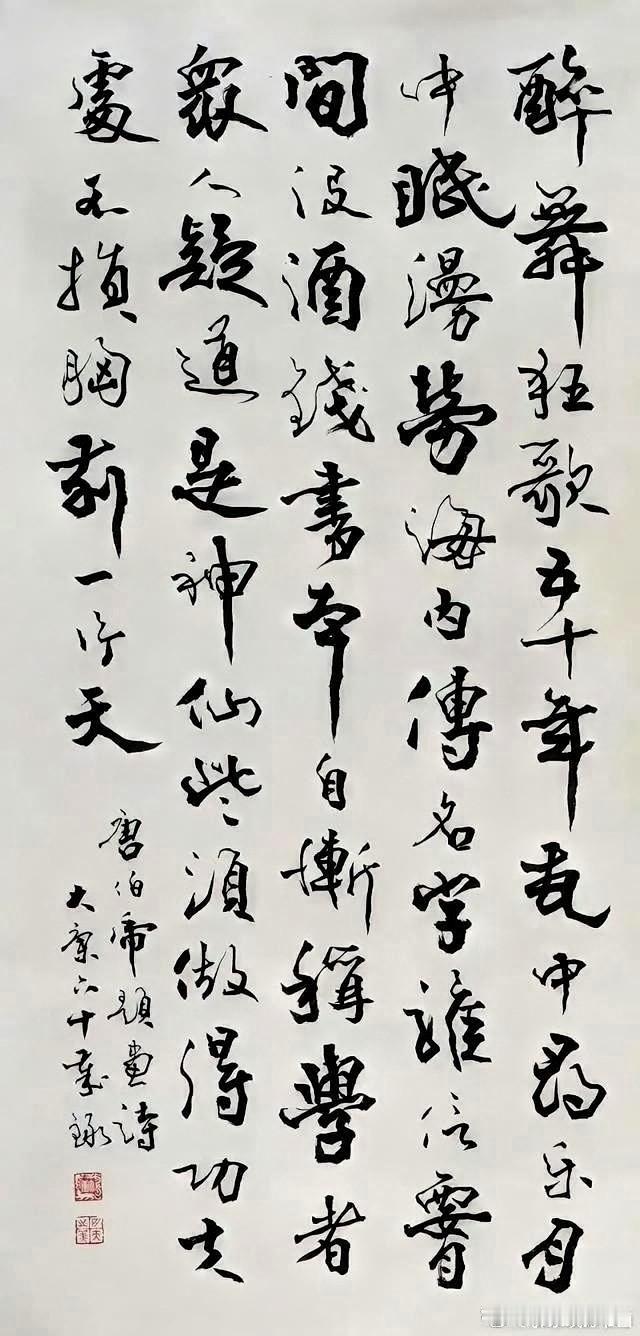 醉舞狂歌五十年花中乐月
中眠漫勞海内傳名字誰信腰
間没酒錢書本自慚稱學者
衆人疑道是神仙些須做得功夫
處不損胸前一片天
唐伯虎題畫詩
大康六十歲録